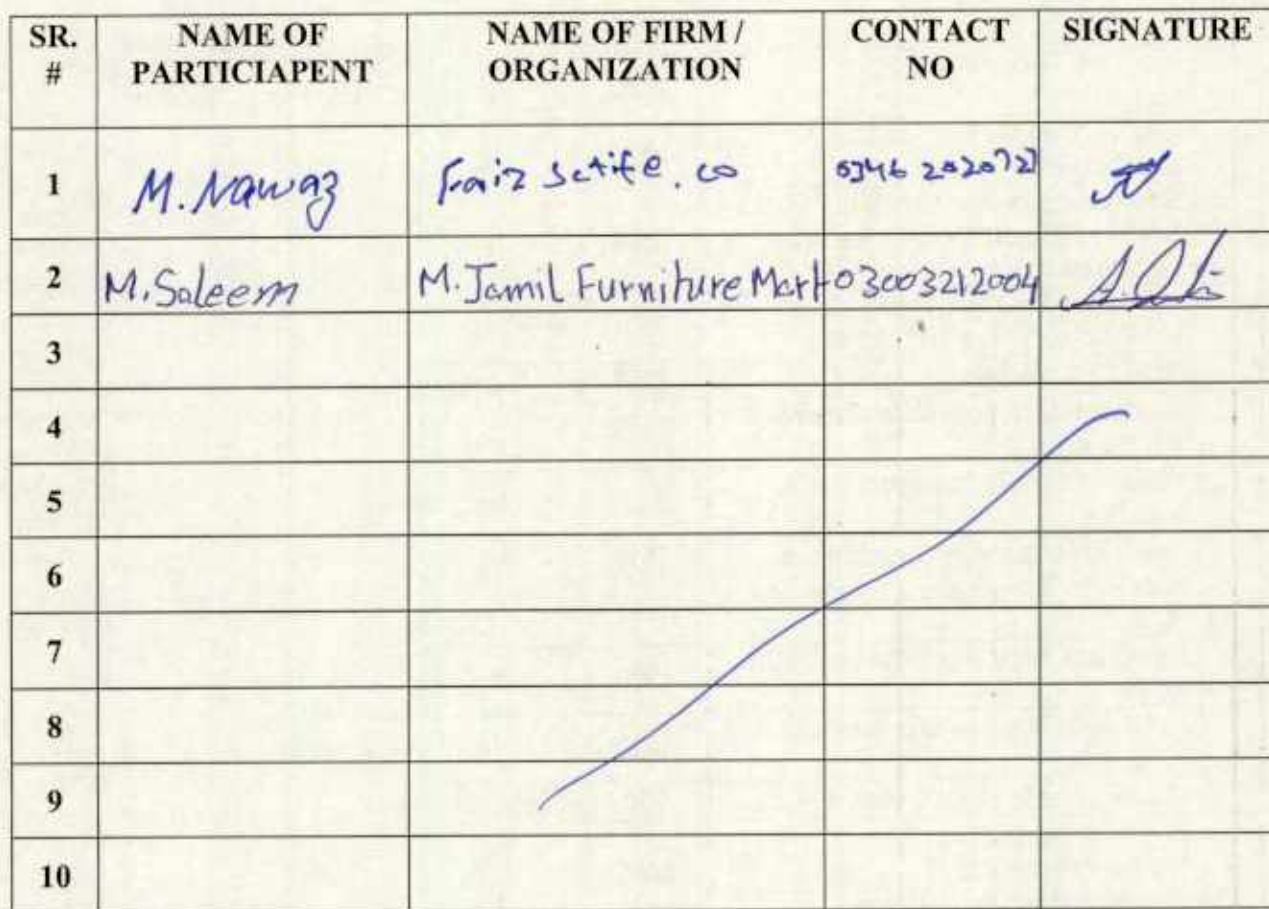 SR. # NAME OF PARTICIAPENT NAME OF FIRM / ORGANIZATION CONTACT NO SIGNATURE
1 M. Nawaz Faiz . co
2 M. Saleem M. Jamil Furniture Mart 03003212004
3
4
5
6
7
8
9
10